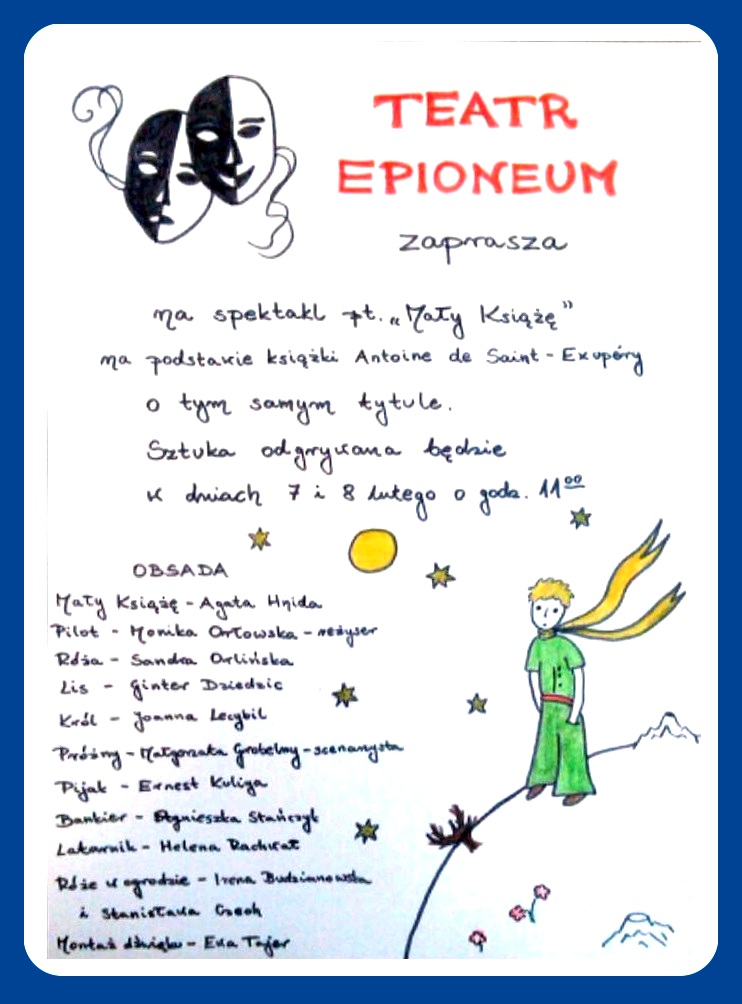 TEATR
EPIONEUM
zaprasza
na spektakl pt. „Mały Książę”
na podstawie książki Antoine de Saint-Exupéry
o tym samym tytule.
Sztuka odgrywana będzie
w dniach 7 i 8 lutego o godz. 11⁰⁰
OBSADA
Mały Książę - Agata Hnida
Pilot - Monika Orłowska - reżyser
Róża - Sandra Orlińska
Lis - Ginter Dziedzic
Król - Joanna Lecybil
Próżny - Małgorzata Grobelny - scenarzysta
Pijak - Ernest Kuliga
Bankier - Agnieszka Stańczyk
Latarnik - Helena Rachwał
Róże w ogrodzie - Irena Budzianowska
i Stanisława Czech
Montaż dźwięku - Ewa Tajer